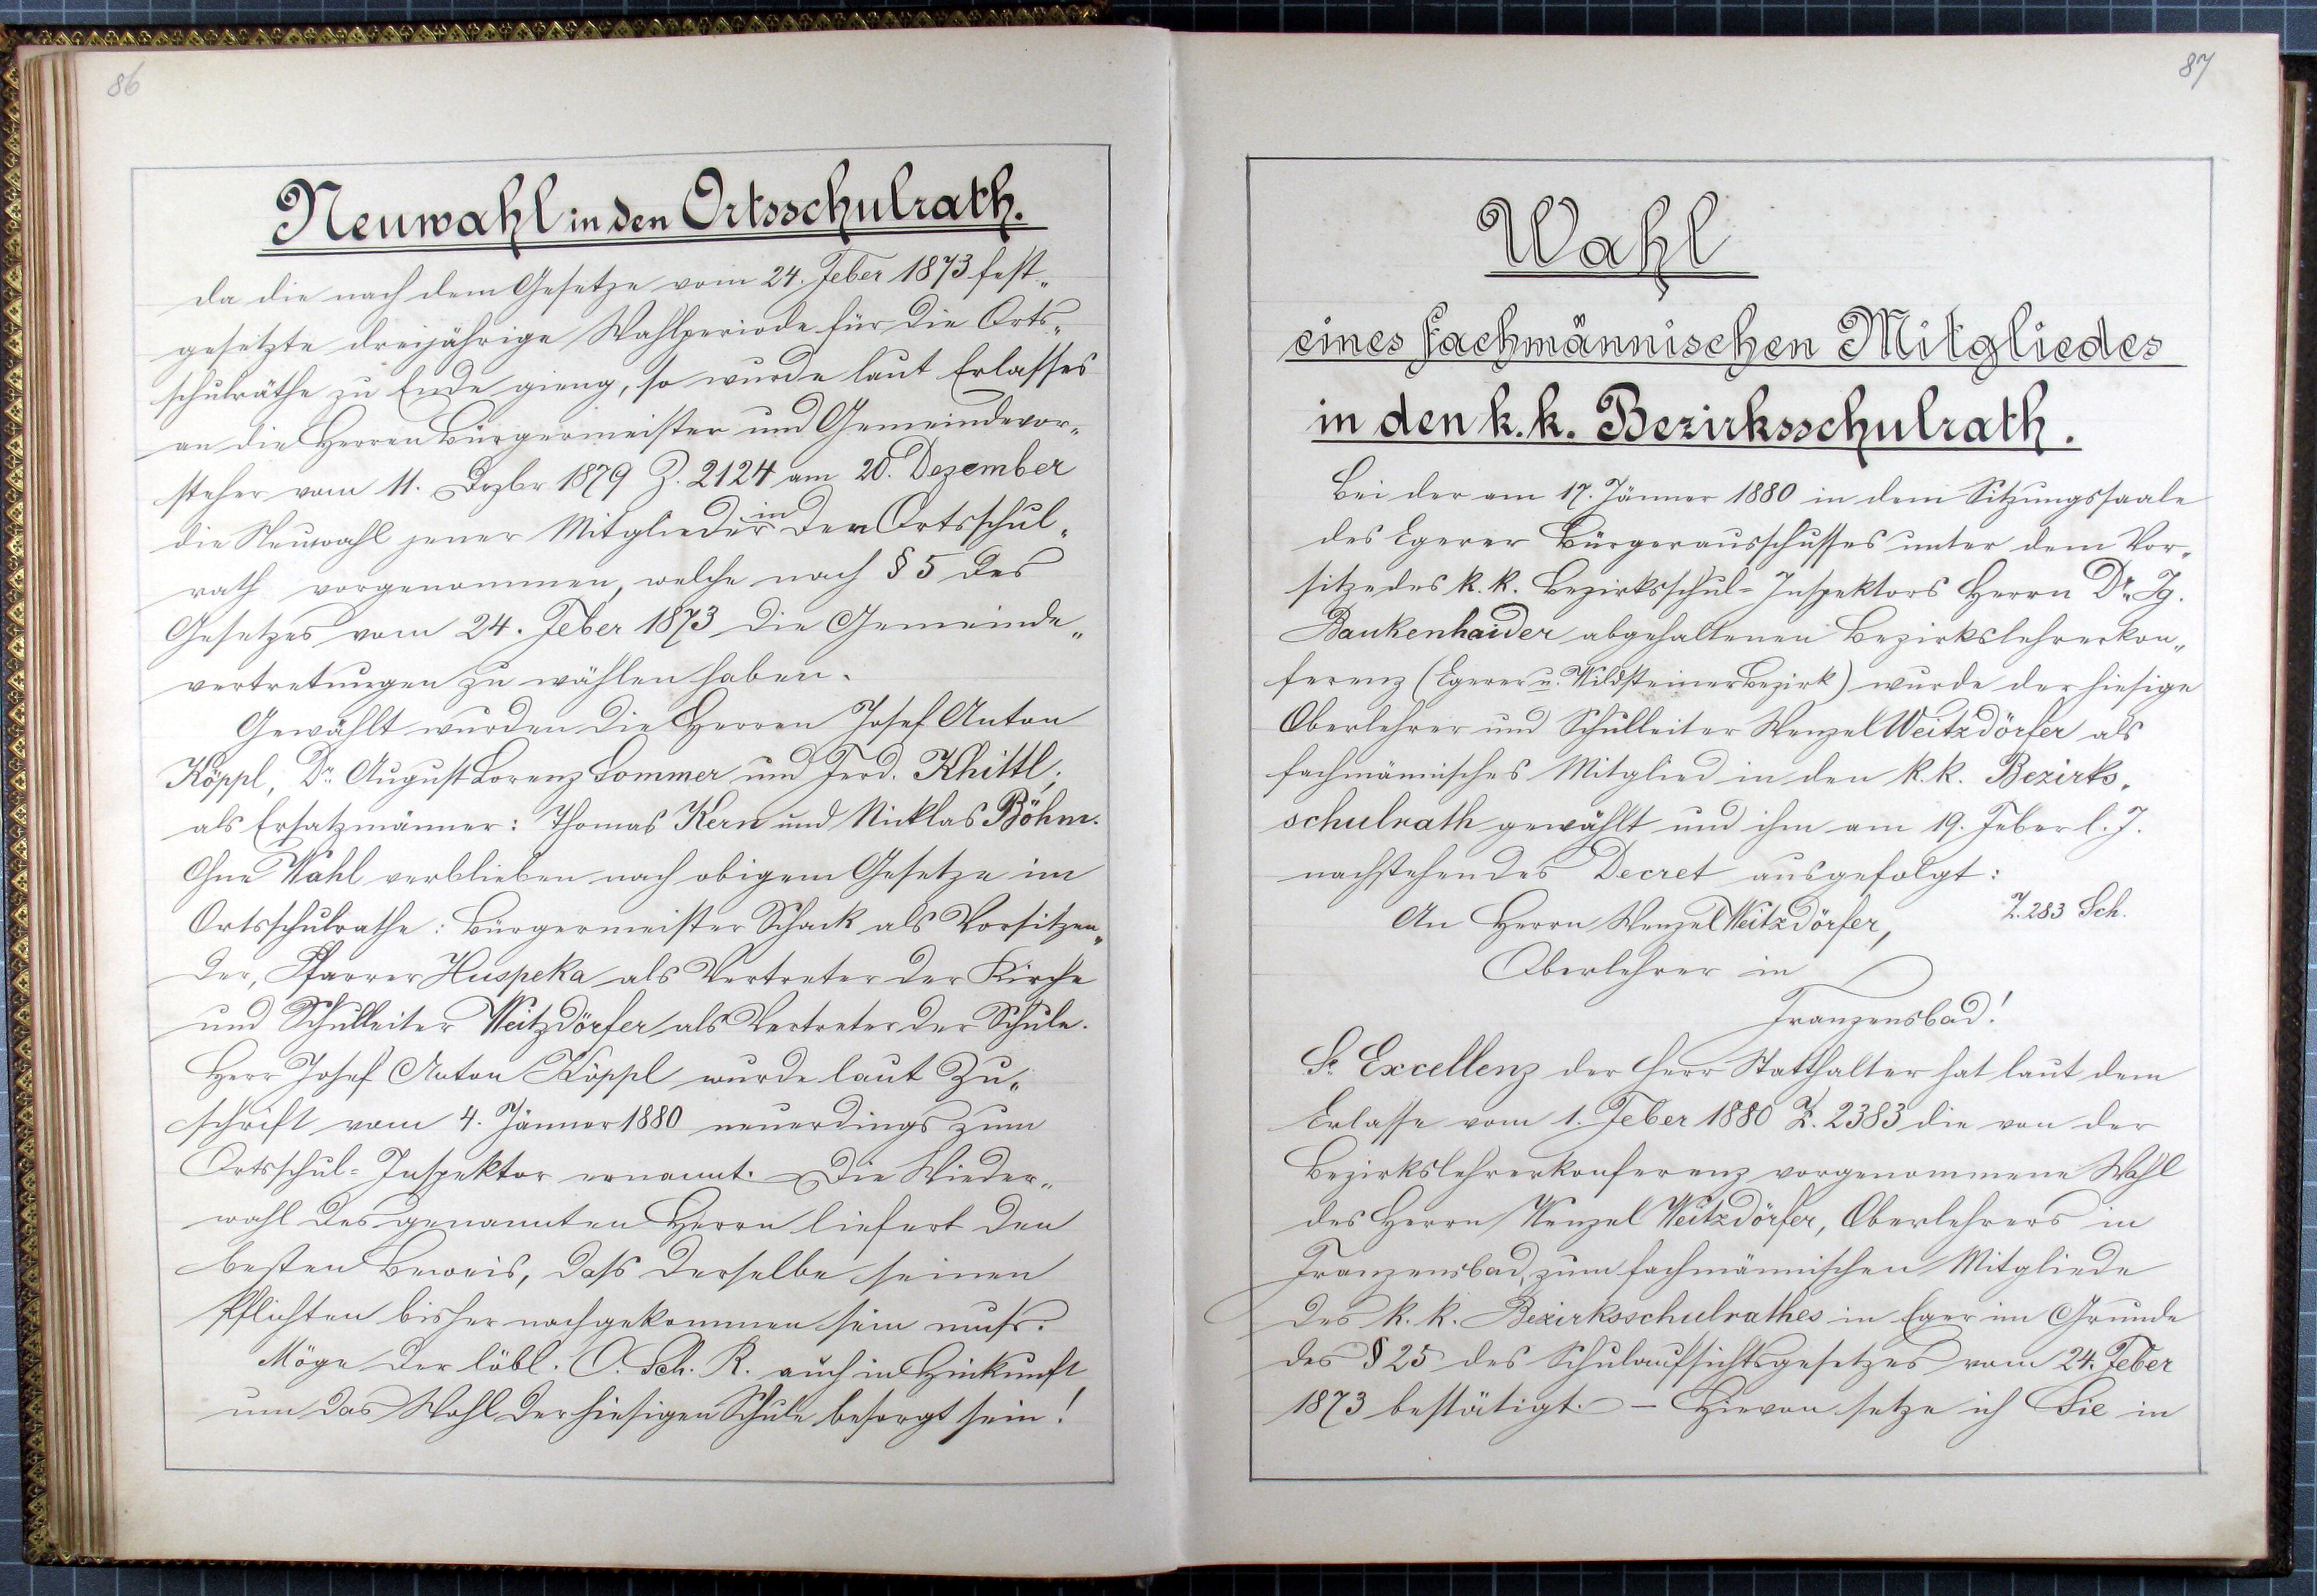 86
Neuwahl in den Ortsschulrath.
Da die nach dem Gesetze vom 24. Feber 1873 fest„
gesetzte dreijährige Wahlperiode für die Orts„
schulräthe zu Ende gieng, so wurde laut Erlasses
an die Herren Bürgermeister und Gemeindevor„
steher vom 11. Dezbr 1879 Z. 2124 am 20. Dezember
die Neuwahl jener Mitglieder in den Ortsschul„
rath vorgenommen, welche nach § 5 des
Gesetzes vom 24. Feber 1873 die Gemeinde„
vertretungen zu wählen haben.
Gewählt wurden die Herren Josef Anton
Köppl, Dr. August Lorenz Sommer und Ferd. Khittl;
als Ersatzmänner: Thomas Kern und Nicklas Böhm.
Ohne Wahl verblieben nach obigem Gesetze im
Ortsschulrathe: Bürgermeister Schack als Vorsitzen„
der, Pfarrer Huspeka als Vertreter der Kirche
und Schulleiter Weitzdörfer als Vertreter der Schule.
Herr Josef Anton Köppl wurde laut Zu„
schrift vom 4. Jänner 1880 neuerdings zum
Ortsschul-Inspektor ernannt. Die Wieder„
wahl des genannten Herrn liefert den
besten Beweis, daß derselbe seinen
Pflichten bisher nachgekommen sein muß.
Möge der löbl. O. Sch. R. auch in Hinkunft
um das Wohl der hiesigen Schule besorgt sein!
87
Wahl
eines fachmännischen Mitgliedes
in den k. k. Bezirksschulrath.
Bei der am 17. Jänner 1880 in dem Sitzungssaale
des Egerer Bürgerausschusses unter dem Vor„
sitze des k. k. Bezirksschul-Inspektors Herrn Dr. Ig.
Baukenhaider abgehaltenen Bezirkslehrerkon„
ferenz (Egerer u. Wildsteiner Bezirk) wurde der hiesige
Oberlehrer und Schulleiter Wenzel Weitzdörfer als
fachmännisches Mitglied in den k. k. Bezirks„
schulrath gewählt und ihm am 19. Feber l. J.
nachstehendes Decret ausgefolgt:
Z. 283 Sch.
An Herrn Wenzel Weitzdörfer,
Oberlehrer in
Franzensbad!
Se Excellenz der Herr Statthalter hat laut dem
Erlasse vom 1. Feber 1880 Z. 2383 die von der
Bezirkslehrerkonferenz vorgenommene Wahl
des Herrn Wenzel Weitzdörfer, Oberlehrers in
Franzensbad, zum fachmännischen Mitgliede
des k. k. Bezirksschulrathes in Eger im Grunde
des § 25 des Schulaufsichtsgesetzes vom 24. Feber
1873 bestätigt. – Hievon setze ich Sie in